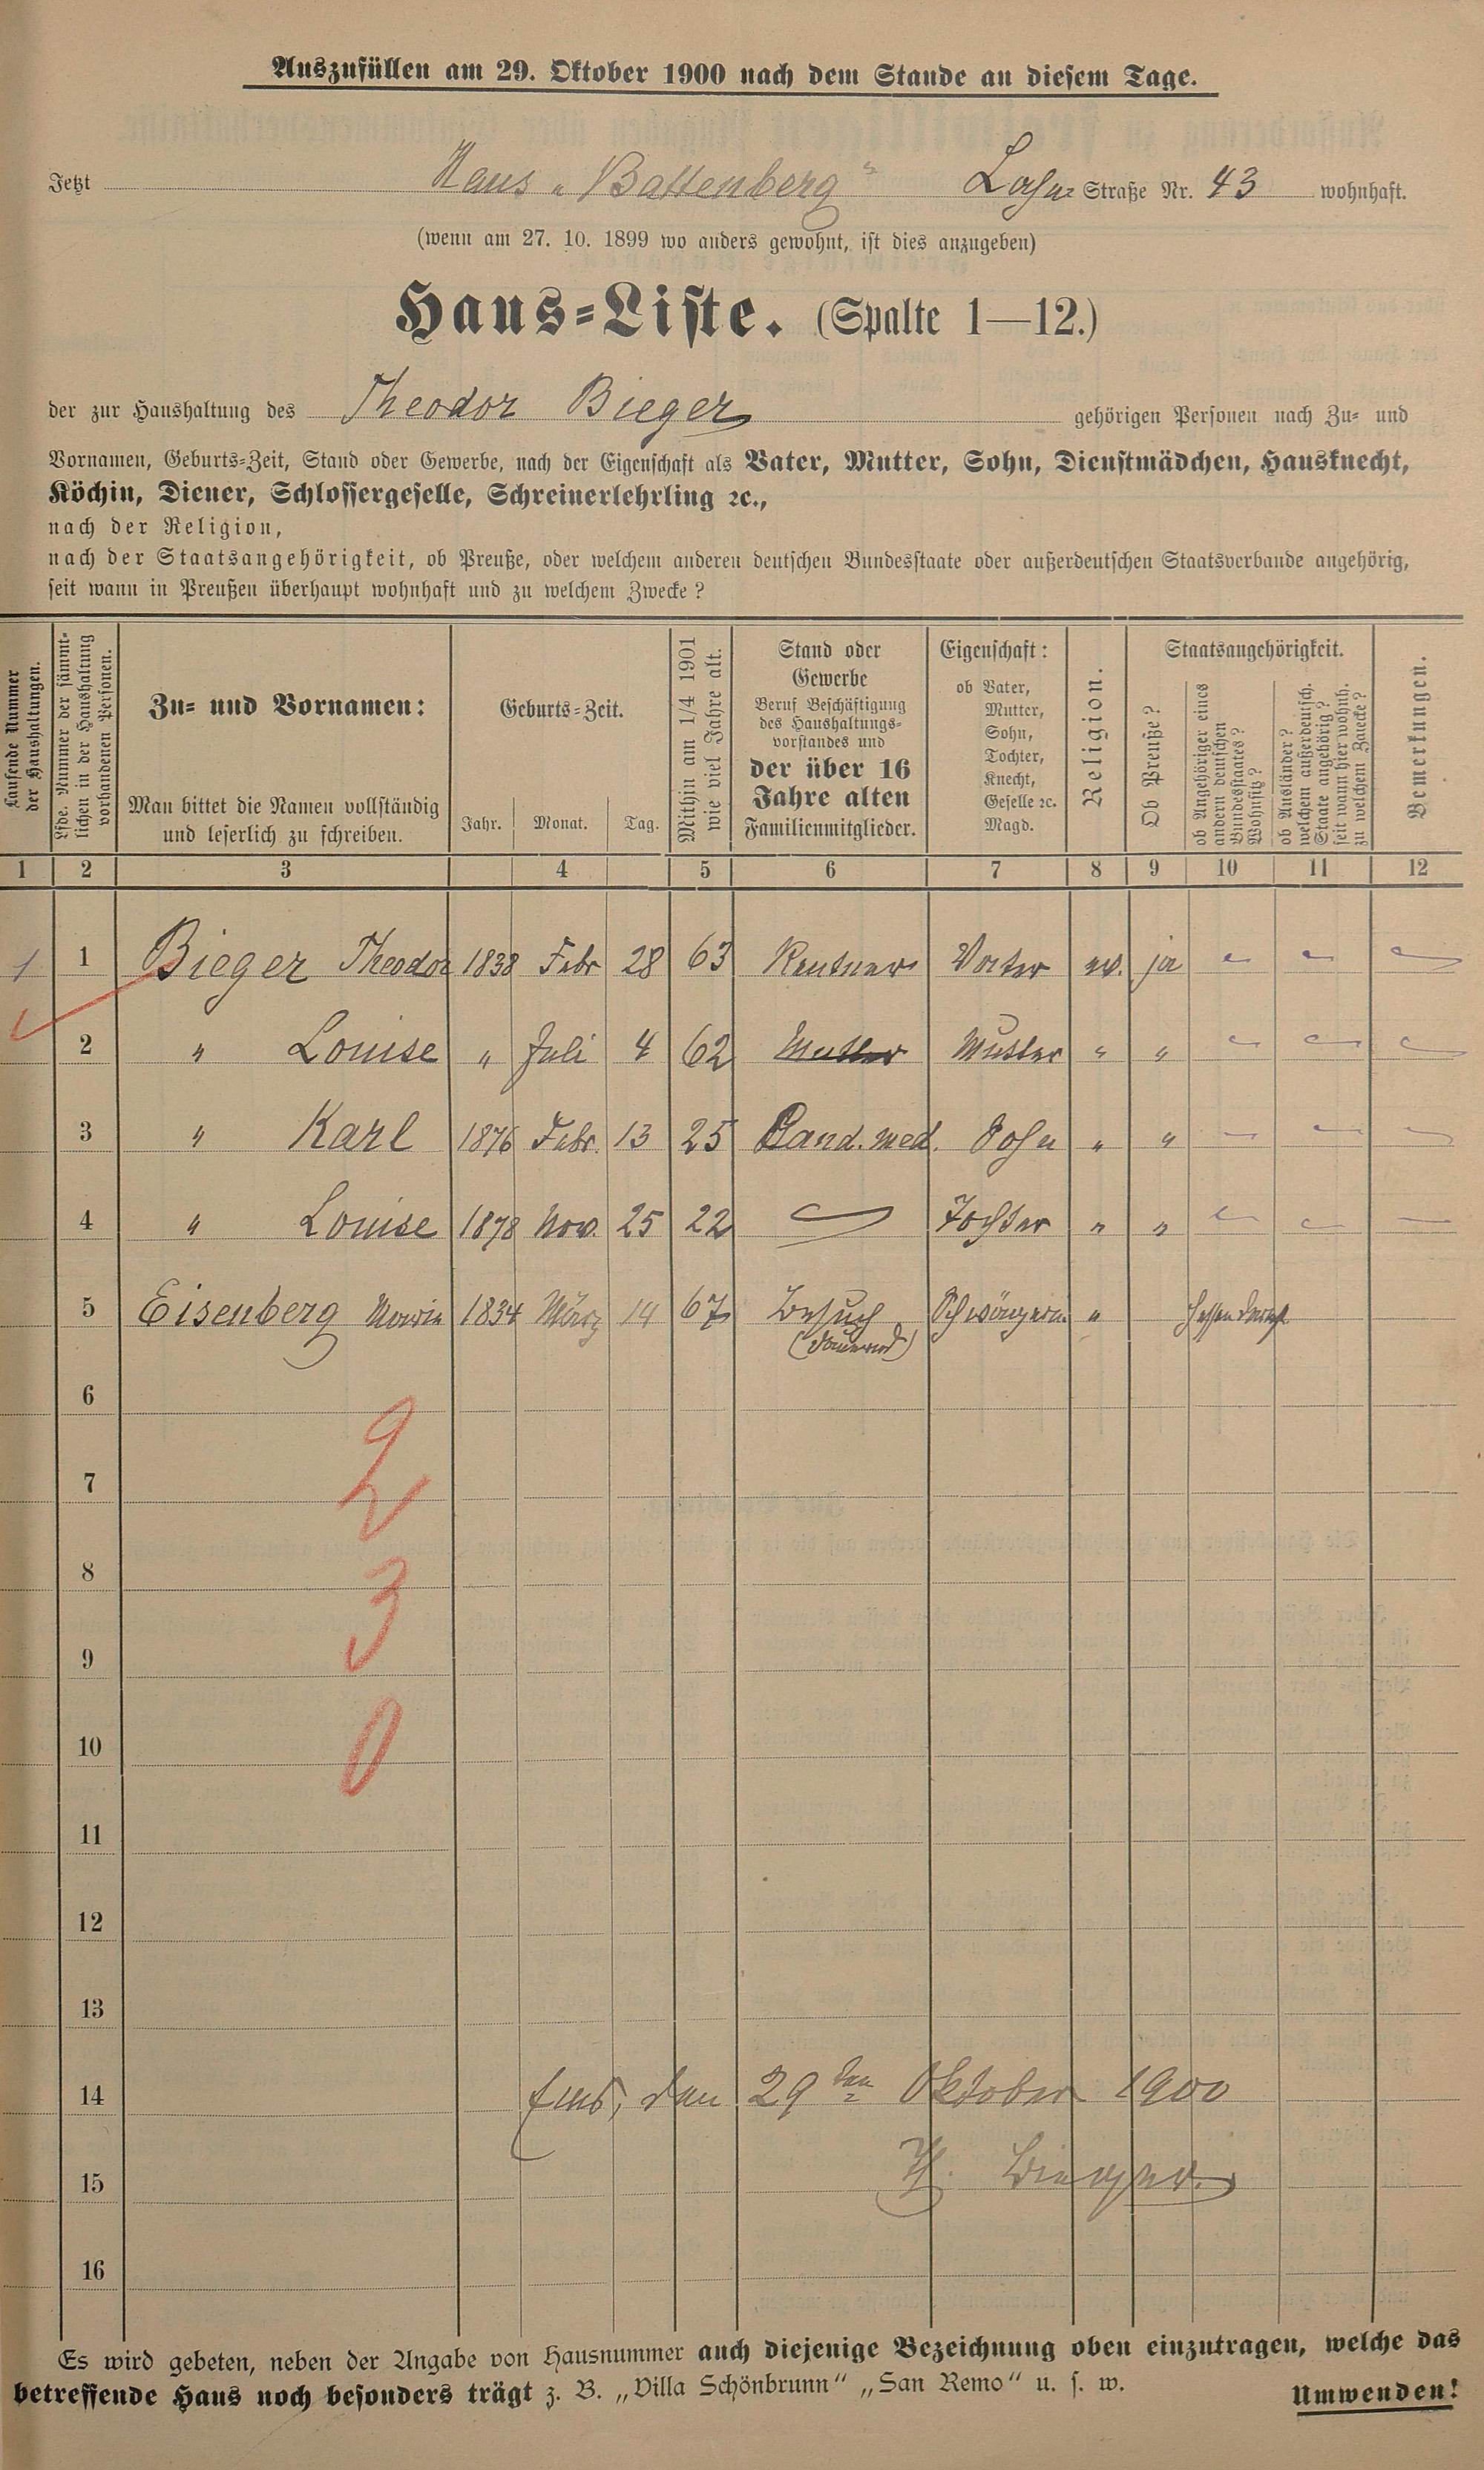 Auszufüllen am 29. Oktober 1900 nach dem Stande an diesem Tage.
Jetzt Haus „Battenberg“ Lahn Straße Nr. 43 wohnhaft.
(wenn am 27. 10. 1899 wo anders gewohnt, ist dies anzugeben)
Haus-Liste. (Spalte 1—12.)
der zur Haushaltung des Theodor Bieger gehörigen Personen nach Zu- und
Vornamen, Geburts-Zeit, Stand oder Gewerbe, nach der Eigenschaft als Vater, Mutter, Sohn, Dienstmädchen, Hausknecht,
Köchin, Diener, Schlossergeselle, Schreinerlehrling ꝛc.,
nach der Religion,
nach der Staatsangehörigkeit, ob Preuße, oder welchem anderen deutschen Bundesstaate oder außerdeutschen Staatsverbande angehörig,
seit wann in Preußen überhaupt wohnhaft und zu welchem Zwecke?
Laufende Nummer
der Haushaltungen.
Lfde. Nummer der sämmt-
lichen in der Haushaltung
vorhandenen Personen.
Zu- und Vornamen:
Man bittet die Namen vollständig
und leserlich zu schreiben.
Geburts-Zeit.
Jahr. Monat. Tag.
Mithin am 1/4 1901
wie viel Jahre alt.
Stand oder
Gewerbe
Beruf Beschäftigung
des Haushaltungs-
vorstandes und
der über 16
Jahre alten
Familienmitglieder.
Eigenschaft:
ob Vater,
Mutter,
Sohn,
Tochter,
Knecht,
Geselle ꝛc.
Magd.
Religion.
Staatsangehörigkeit.
Ob Preuße?
ob Angehöriger eines
andern deutschen
Bundesstaates?
Wohnsitz?
ob Ausländer?
welchem außerdeutsch.
Staate angehörig?
seit wann hier wohnh.
zu welchem Zwecke?
Bemerkungen.
1 2 3 4 5 6 7 8 9 10 11 12
1 1 Bieger Theodor 1838 Febr 28 63 Rentner Vater ev. ja
2 „ Louise „ Juli 4 62 Mutter Mutter „ „
3 „ Karl 1876 Febr. 13 25 Cand. med. Sohn „ „
4 „ Louise 1878 Nov. 25 22 Tochter „ „
5 Eisenberg Marie 1834 März 14 67 Besuch Schwägerin „
(dauernd)
6
7
8
9
10
11
12
13
14
15
16
2
3
0
Ems, den 29ten Oktober 1900
Th. Bieger.
Es wird gebeten, neben der Angabe von Hausnummer auch diejenige Bezeichnung oben einzutragen, welche das
betreffende Haus noch besonders trägt z. B. „Villa Schönbrunn“ „San Remo“ u. s. w.
Umwenden!